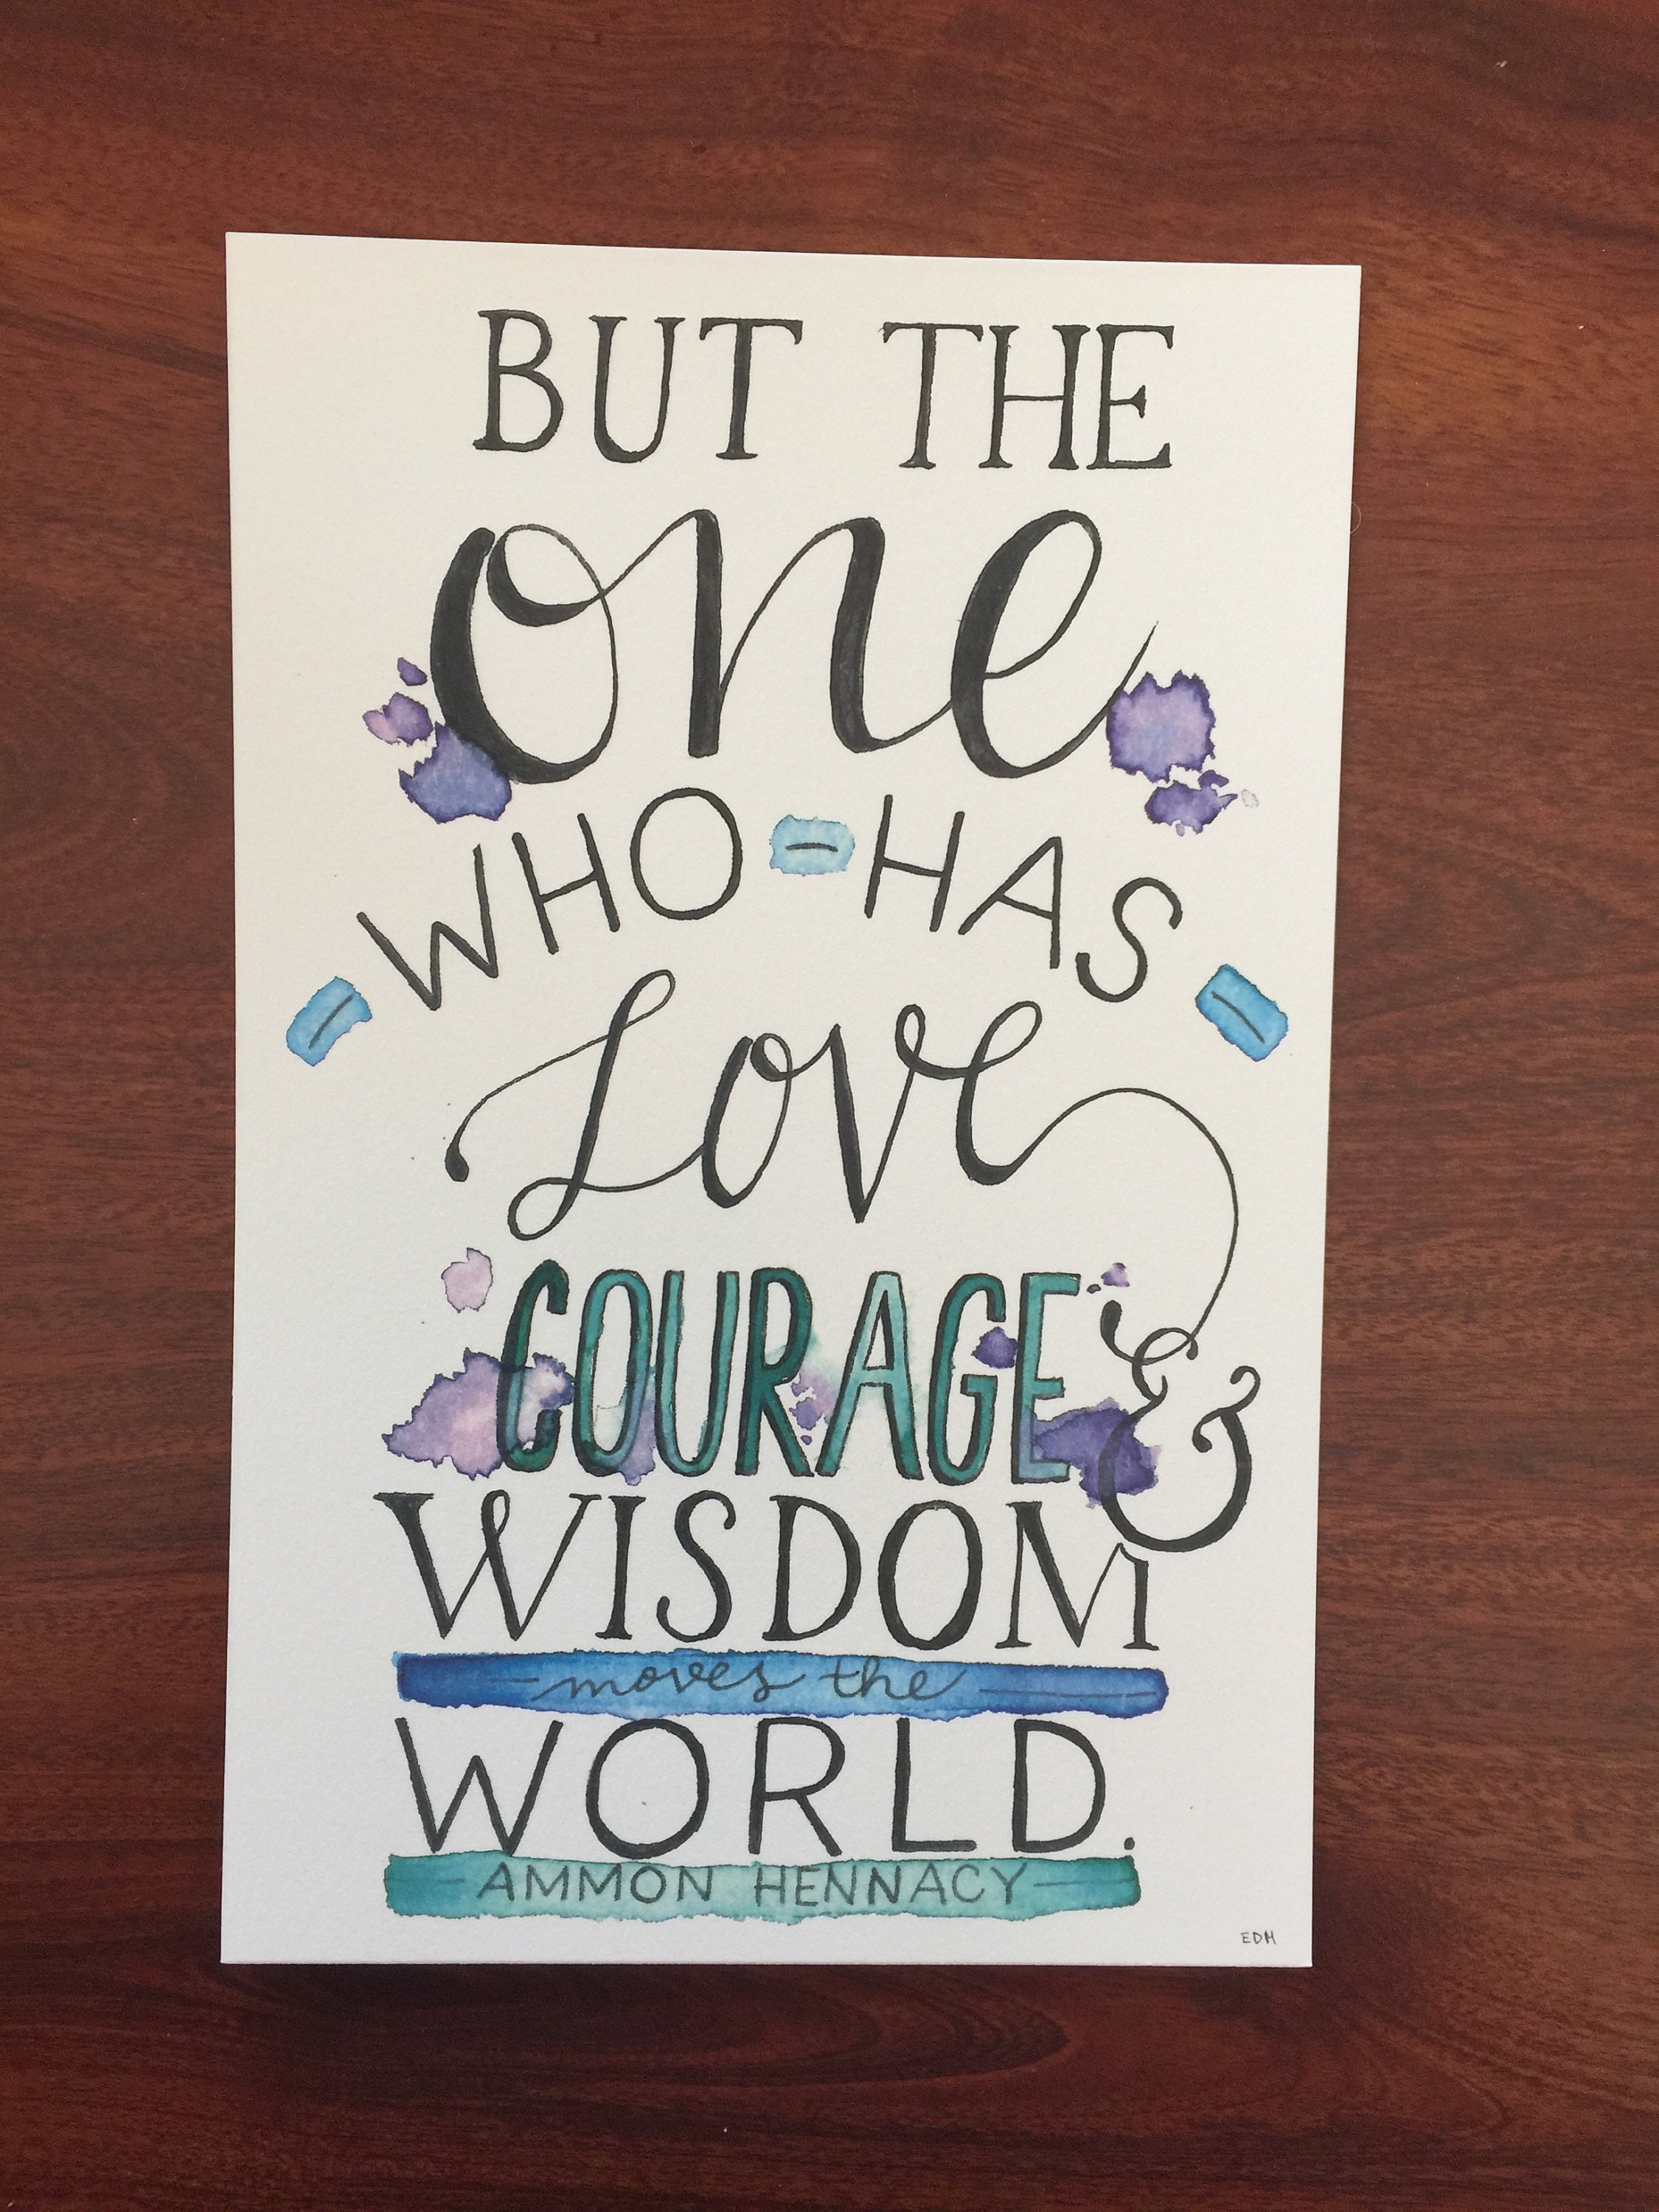 BUT THE
one
- WHO - HAS -
Love
COURAGE &
WISDOM
- moves the -
WORLD.
- AMMON HENNACY -
EDM